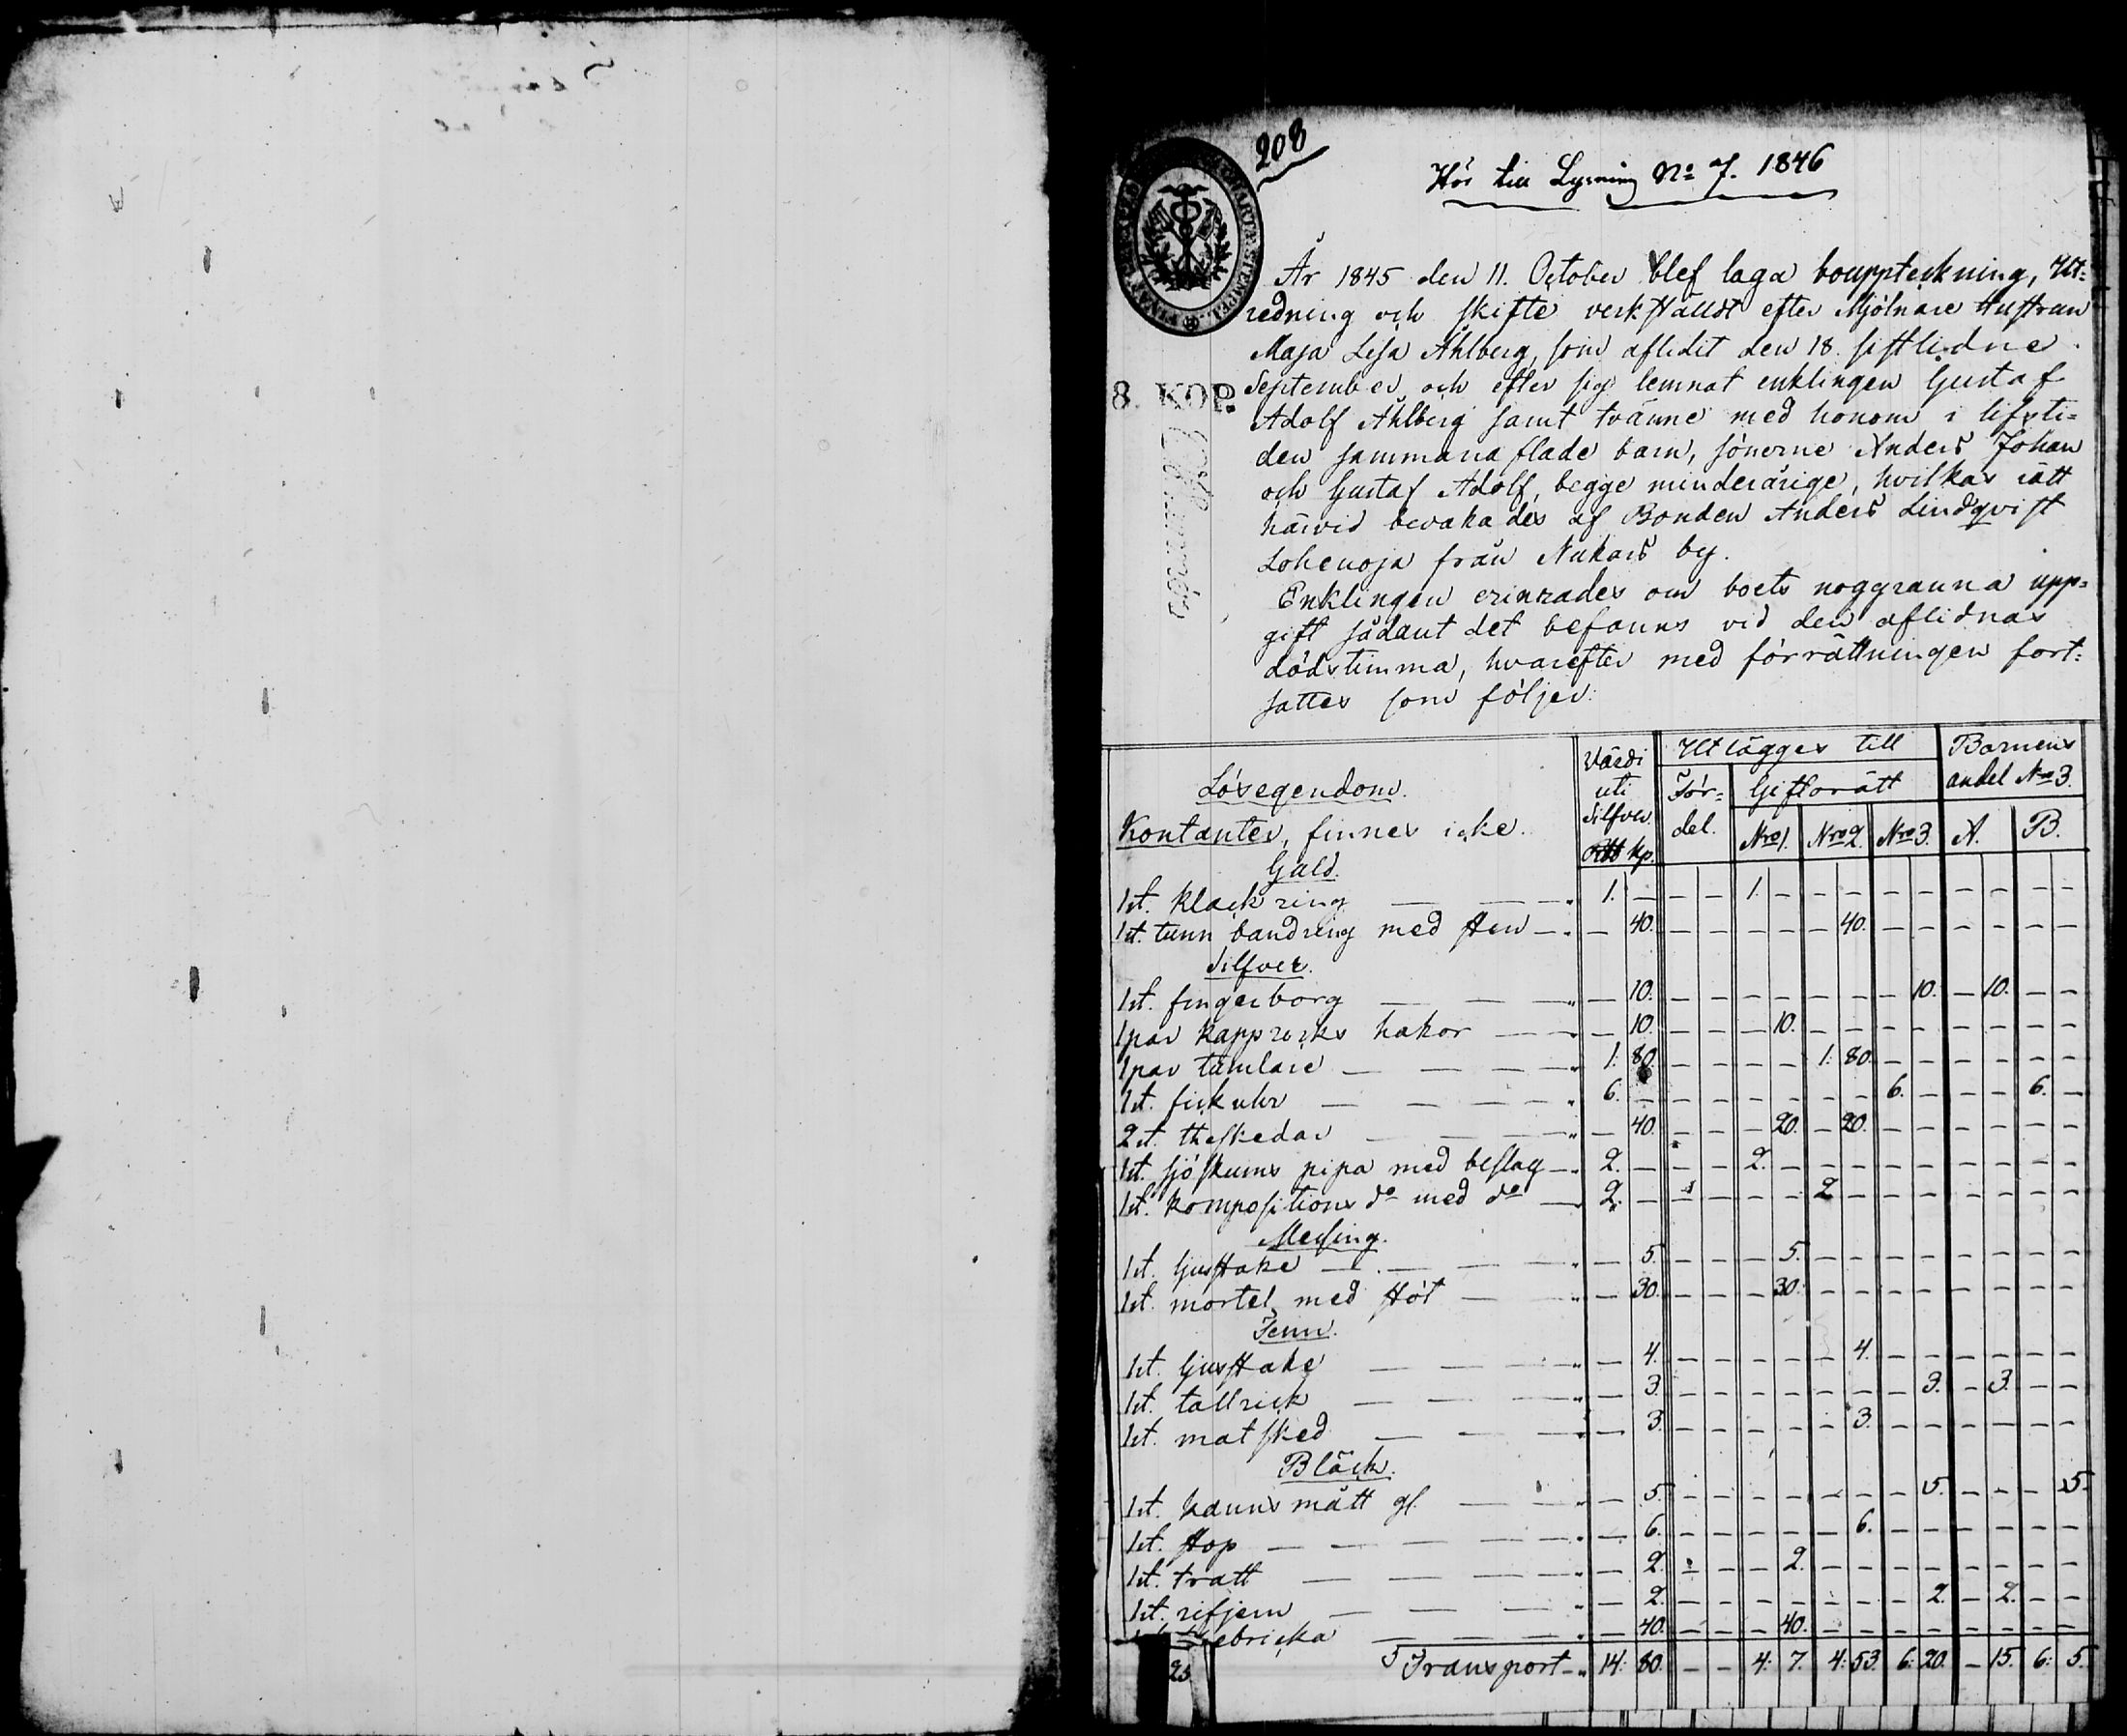 208
Hör till Lysning No 7. 1846
År 1845 den 11. October blef laga bouppteckning, Ut-
redning och skifte verkställdt efter Mjölnare Hustrun
Maja Lisa Åhlberg, som aflidit den 18. sistlidne
September, och efter sig lemnat enklingen Gustaf
8. KOP.
Adolf Åhlberg samt tvänne med honom i lifsti-
den sammanaflade barn, sönerne Anders Johan
och Gustaf Adolf, begge minderårige, hvilkas rätt
härvid bevakades af Bonden Anders Lindqvist
Lohenoja från Nukars by.
Enklingen erinrades om boets noggranna upp-
gift sådant det befanns vid den aflidnas
dödstimma, hvarefter med förrättningen fort-
sattes som följer:
Lösegendom. Värde uti Silfver. Kp. Utlägges till Barnens
För- del. Giftorätt andel No 3.
Kontanter, finnes icke. Nro 1. Nro 2. Nro 3. A. B.
Guld.
1 st. klackring — — „ 1. — — — 1. — — — — — — — — —
1 st. tunn bandring med sten — „ — 40. — — — — — 40. — — — — — —
Silfver.
1 st. fingerborg — — — „ — 10. — — — — — — — 10. — 10. — —
1 par kapprocks hakor — — „ — 10. — — — 10. — — — — — — — —
1 par tumlare — — — — „ 1. 80. — — — — 1. 80. — — — — — —
1 st. fickuhr — — — — — „ 6. — — — — — — — 6. — — — 6. —
2 st. theskedar — — — — „ — 40. — — — 20. — 20. — — — — — —
1 st. sjöskums pipa med beslag — „ 2. — — — 2. — — — — — — — — —
1 st. kompositions do med do — 2. — — — — — 2 — — — — — — —
Messing.
1 st. ljusstake — — — — „ — 5. — — — 5. — — — — — — — —
1 st. mortel med stöt — — „ — 30. — — — 30. — — — — — — — —
Tenn.
1 st. ljusstake — — — — „ — 4. — — — — — 4. — — — — — —
1 st. tallrick — — — — „ — 3. — — — — — — — 3. — 3. — —
1 st. matsked — — — „ — 3. — — — — — 3. — — — — — —
Bläck.
1 st. kanns mått gl. — — „ — 5. — — — — — — — 5. — — — 5.
1 st. stop — — — — — „ — 6. — — — — — 6. — — — — — —
1 st. tratt — — — — — „ — 2. — — — 2. — — — — — — — —
1 st. rifjern — — — — „ — 2. — — — — — — — 2. — 2. — —
— — — — „ — 40. — — — 40. — — — — — — — —
Transport — „ 14: 80. — — 4: 7. 4: 53. 6: 20. — 15. 6: 5.